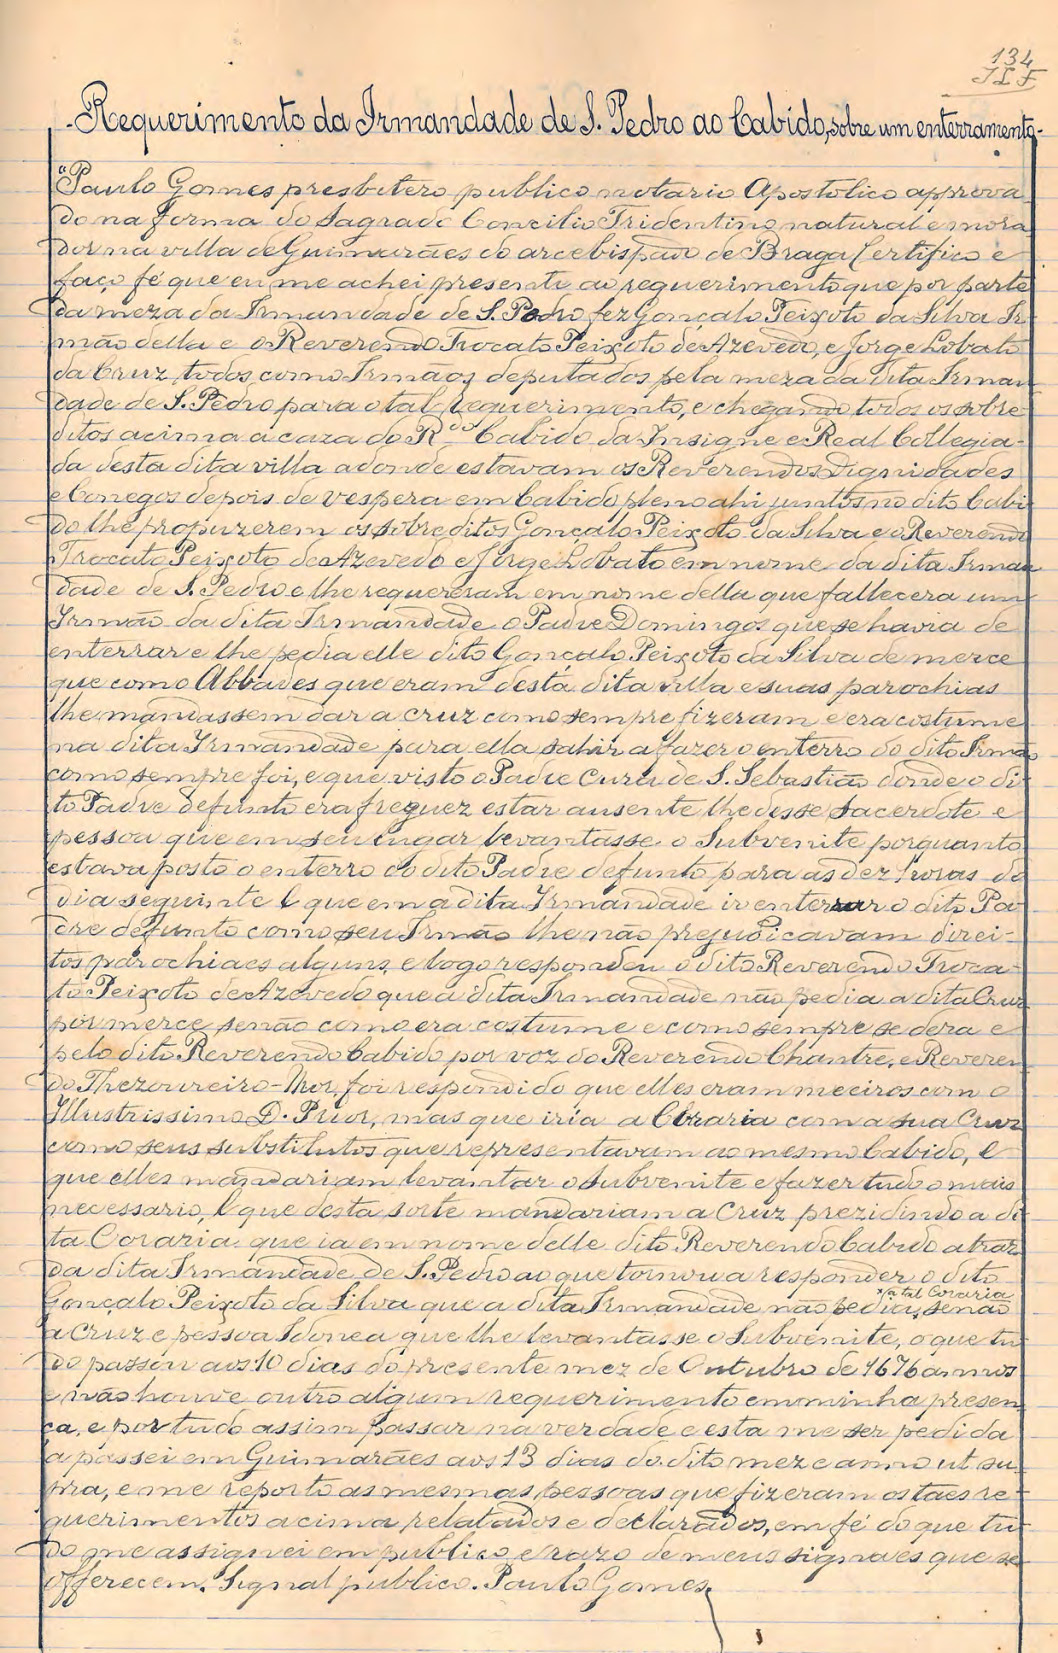 134
JLF
- Requerimento da Irmandade de S. Pedro ao Cabido, sobre um enterramento -
"Paulo Gomes presbitero publico notario Apostolico approva
do na forma do Sagrado Concilio Tridentino natural e mora
dor na villa de Guimarães do arcebispado de Braga Certifico e
faço fé que eu me achei presente ao requerimento que por parte
da meza da Irmandade de S. Pedro fez Gonçalo Peixoto da Silva Ir
mão della e o Reverendo Trocato Peixoto de Azevedo, e Jorge Lobato
da Cruz, todos, como Irmãos, deputados pela meza da dita Irman
dade de S. Pedro para o tal requerimento, e chegando todos os sobre
ditos acima a caza do R.do Cabido da Insigne e Real Collegia-
da desta dita villa adonde estavam os Reverendos Dignidades
e Conegos depois de vespera em Cabido pleno ahi juntos no dito Cabi
do lhe propuzerem os sobreditos Gonçalo Peixoto da Silva e o Reverendo
Trocato Peixoto de Azevedo e Jorge Lobato em nome da dita Irman
dade de S. Pedro e lhe requereram em nome della que fallecera um
Irmão da dita Irmandade o Padre Domingos que se havia de
enterrar e lhe pedia elle dito Gonçalo Peixoto da Silva de merce
que como Abbades que eram desta dita villa e suas parochias
lhe mandassem dar a cruz como sempre fizeram e era costume
na dita Irmandade para ella sahir a fazer o enterro do dito Irmão
como sempre foi, e que visto o Padre Cura de S. Sebastião donde o di
to Padre defunto era freguez estar ausente lhe desse Sacerdote e
pessoa que em seu lugar levantasse o Subvenite porquanto
estava posto o enterro do dito Padre defunto para as dez horas do
dia seguinte E que em a dita Irmandade ir enterrar o dito Pa
dre defunto como seu Irmão lhe não prejudicavam direi-
tos parochiaes alguns, e logo respondeu o dito Reverendo Troca-
to Peixoto de Azevedo que a dita Irmandade não pedia a dita Cruz
por merce, senão como era costume e como sempre se dera e
pelo dito Reverendo Cabido por voz do Reverendo Chantre, e Reveren
do Thezoureiro-Mor, foi respondido que elles eram meeiros com o
Illustrissimo D. Prior, mas que iria a Coraria com a sua Cruz
como seus substitutos que representavam ao mesmo Cabido, E
que elles mandariam levantar o Subvenite e fazer tudo o mais
necessario, E que desta sorte mandariam a Cruz prezidindo a di
ta Coraria que ia em nome delle dito Reverendo Cabido atraz
da dita Irmandade de S. Pedro ao que tornou a responder o dito
Gonçalo Peixoto da Silva que a dita Irmandade não pedia, x(a tal Coraria senão
a Cruz e pessoa Idonea que lhe levantasse o Subvenite, o que tu-
do passou aos 10 dias do presente mez de Outubro de 1676 annos
e não houve outro algum requerimento em minha presen
ça, e por tudo assim passar na verdade e esta me ser pedida
a passei em Guimarães aos 13 dias do dito mez e anno ut su-
pra, e me reporto as mesmas pessoas que fizeram os taes re-
querimentos acima relatados e declarados, em fé do que tu-
do me assignei em publico e razo de meus signaes que se
offerecem. Signal publico. Paulo Gomes,